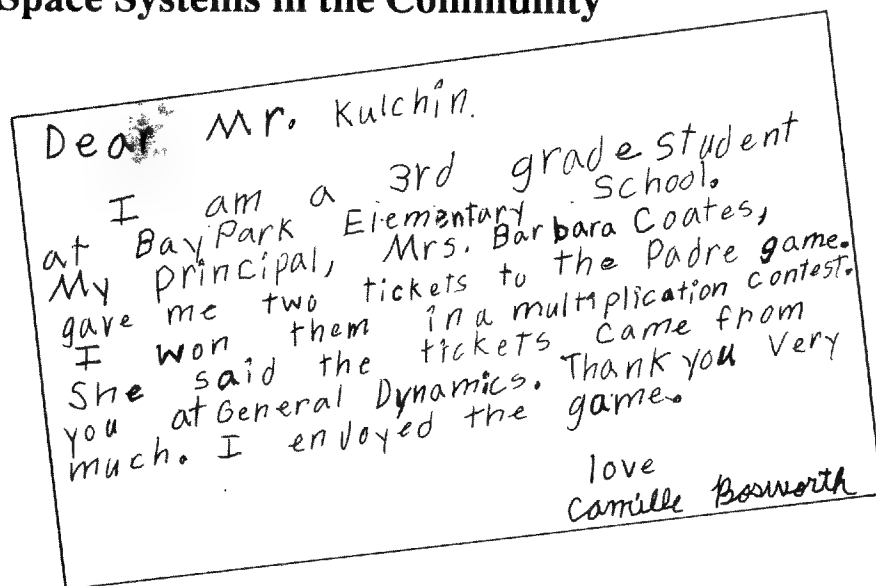 Space Systems in the Community
Dear Mr. Kulchin.
I am a 3rd grade student
at Bay Park Elementary School.
My principal, Mrs. Barbara Coates,
gave me two tickets to the Padre game.
I won them in a multiplication contest.
She said the tickets came from
you at General Dynamics. Thank you very
much. I enjoyed the game.
love
Camille Bosworth